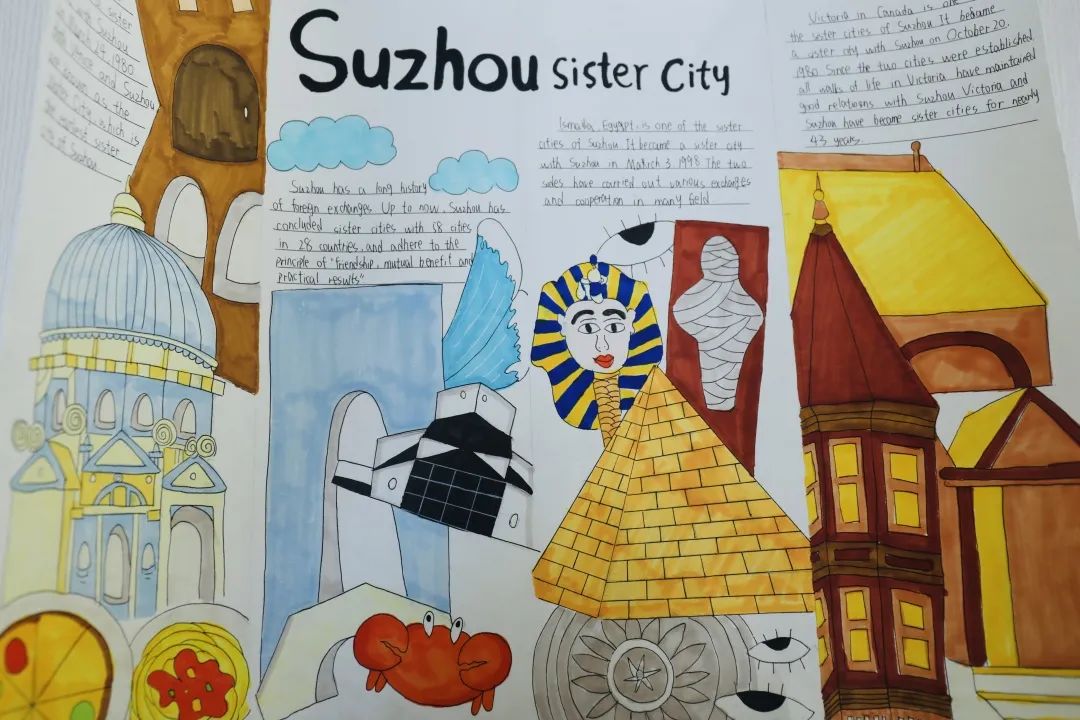 Suzhou sister City
sister
Suzhou
24.1980
Venice and Suzhou
as the
City, which is
earliest sister
of Suzhou
Suzhou has a long history
of foreign exchanges. Up to now, Suzhou has
concluded sister cities with 58 cities
in 28 countries, and adhere to the
principle of "Friendship, mutual benefit and
practical results"
Ismailia, Egypt, is one of the sister
cities of Suzhou It became a sister city
with Suzhou in March 3 1998 The two
sides have carried out various exchanges
and cooperation in many field
Victoria in Canada is one
the sister cities of Suzhou It became
a sister city with Suzhou on October 20.
1980 Since the two cities were established
all walks of life in Victoria have maintained
good relations with Suzhou Victoria and
Suzhou have become sister cities for nearly
43 years